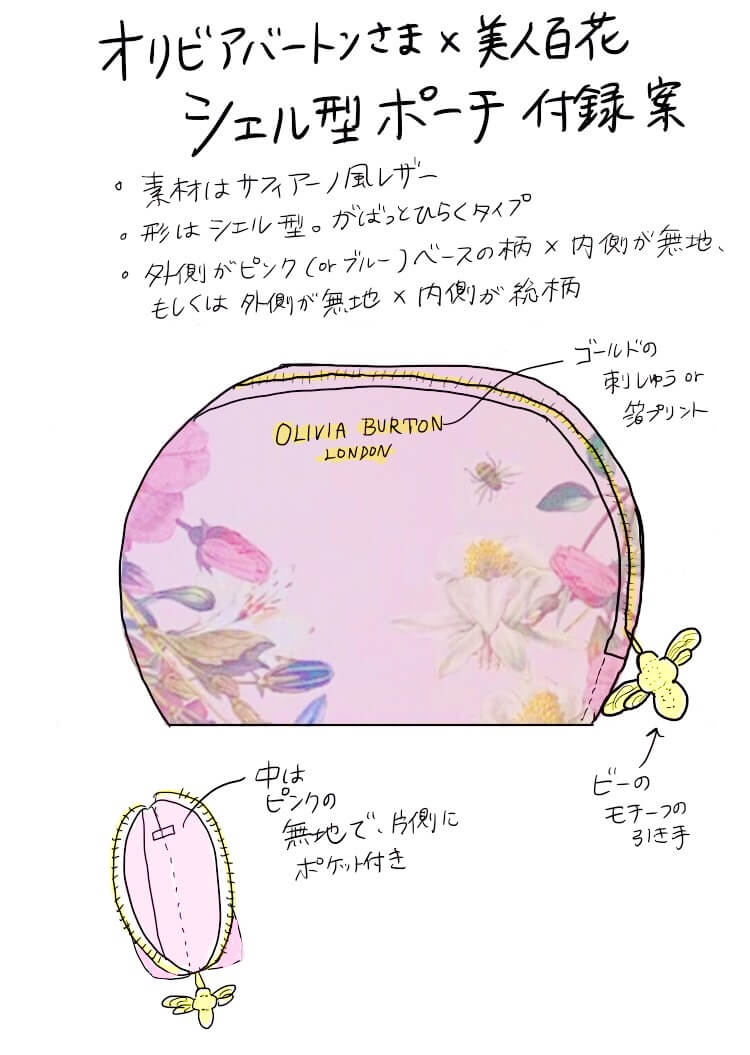 オリビアバートンさま×美人百花
シェル型ポーチ 付録案
• 素材はサフィアーノ風レザー
• 形はシェル型。がばっとひらくタイプ
• 外側がピンク(orブルー)ベースの柄×内側が無地、
もしくは外側が無地×内側が総柄
ゴールドの
刺しゅうor
箔プリント
OLIVIA BURTON
LONDON
ビーの
モチーフの
引き手
中は
ピンクの
無地で、片側に
ポケット付き